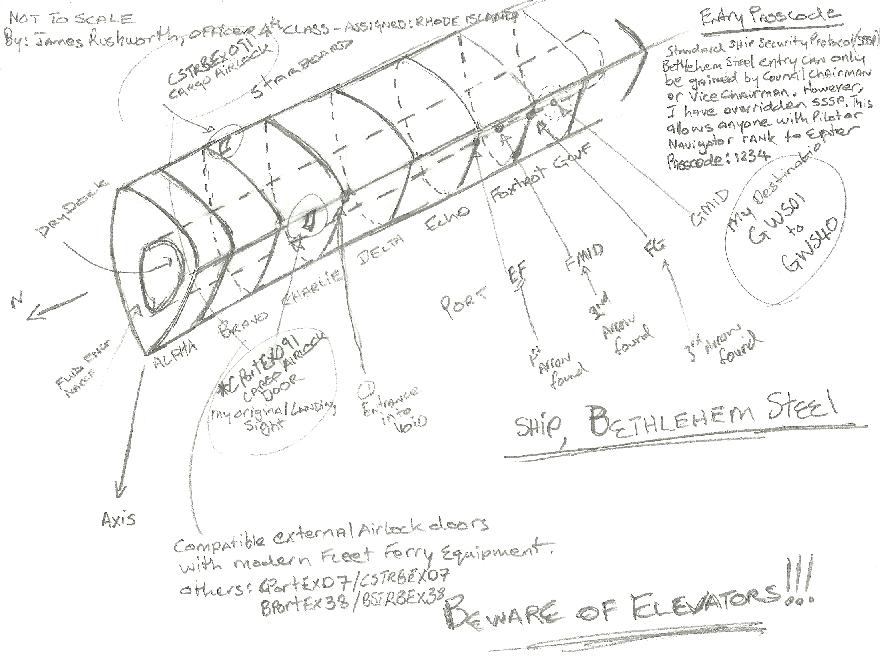 NOT TO SCALE
By: James Rushworth, OFFICER 4th CLASS - ASSIGNED: RHODE ISLAND
CSTRBEX091
CARGO AIRLOCK
STARBOARD
Entry Passcode
Standard Ship Security Protocol (SSSP)
Bethlehem Steel entry can only
be gained by Council Chairman
or Vice Chairman. However,
I have overridden SSSP. This
allows anyone with Pilot or
Navigator rank to Enter
Passcode: 1234
DRY DOCK
My Destination
GWS01
to
GWS40
N
ALPHA
BRAVO
CHARLIE
DELTA
ECHO
Foxtrot
GOLF
PORT
EF
FMID
FG
GMID
1st
Arrow
found
2nd
Arrow
found
3rd Arrow
found
*CPortEX091
CARGO AIRLOCK
DOOR
my original Landing
Sight
①
Entrance
into
Void
SHIP, BETHLEHEM STEEL
Axis
Compatible external Airlock doors
with modern Fleet Ferry Equipment.
others: CPortEX07/CSTRBEX07
BPortEX38/BSTRBEX38
BEWARE OF ELEVATORS!!!